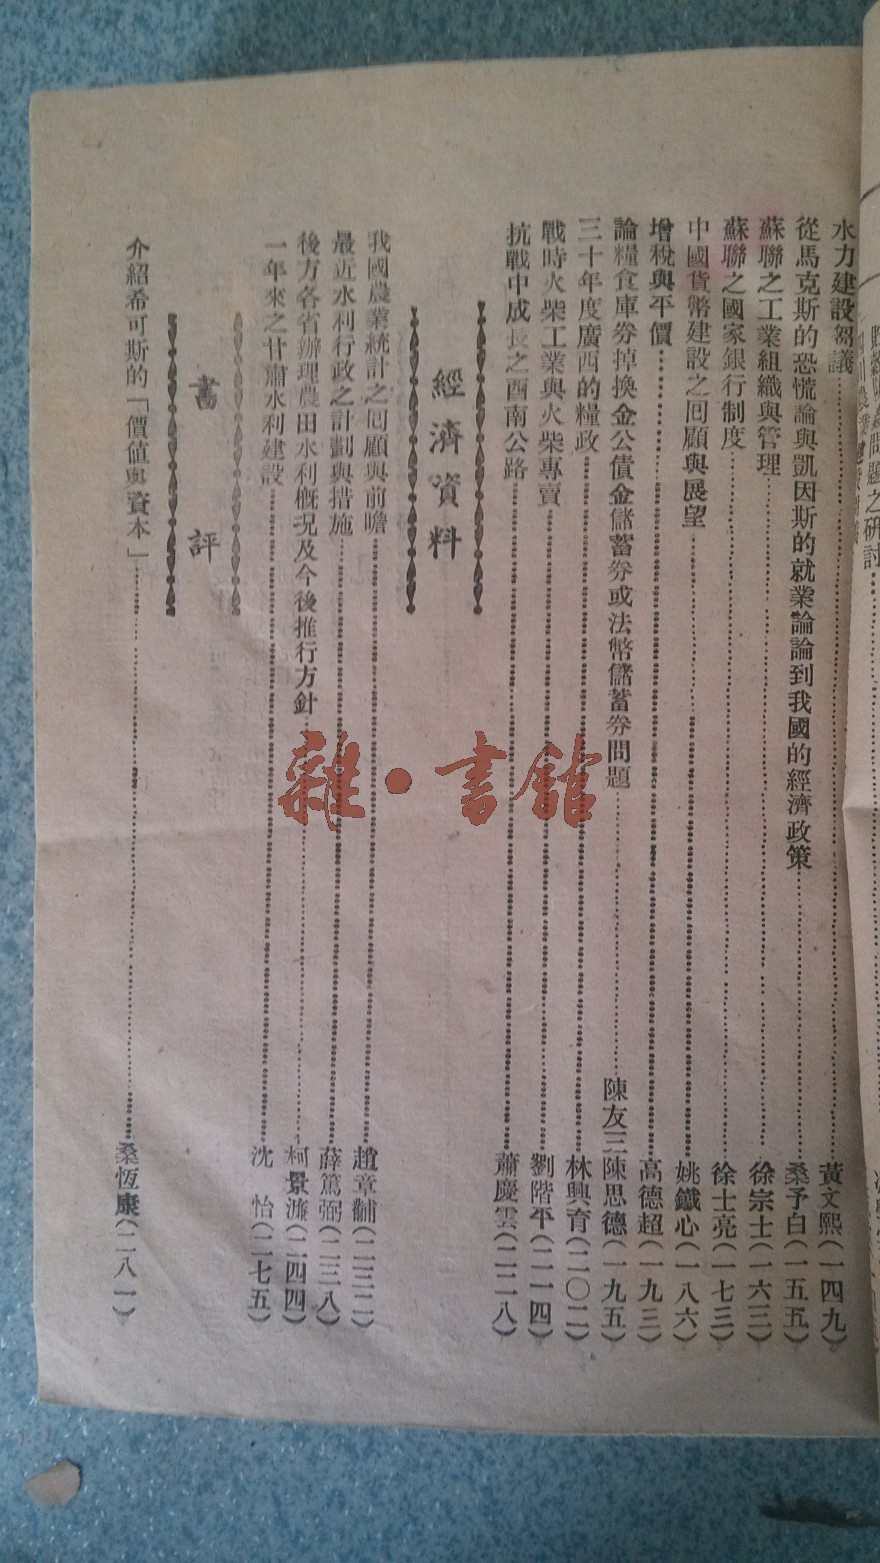 問題之研討
水力建設芻議 黃文熙(一四九)
從馬克斯的恐慌論與凱因斯的就業論論到我國的經濟政策 桑予白(一五五)
蘇聯之工業組織與管理 徐宗士(一六三)
蘇聯之國家銀行制度 徐士亮(一七三)
中國貨幣建設之回顧與展望 姚鐵心(一八六)
增稅與平價 高德超(一九三)
論糧食庫券掉換金公債金儲蓄券或法幣儲蓄券問題 陳友三陳思德(一九五)
三十年度廣西的糧政 林興育(二〇二)
戰時火柴工業與火柴專賣 劉階平(二一四)
抗戰中成長之西南公路 蕭慶雲(二二八)
經濟資料
我國農業統計之回顧與前瞻 趙章黼(二三二)
最近水利行政之計劃與措施 薛篤弼(二三八)
後方各省辦理農田水利概況及今後推行方針 柯景濂(二四四)
一年來之甘肅水利建設 沈怡(二七五)
書評
介紹希可斯的「價値與資本」 桑恆康(二八一)
雜·書館